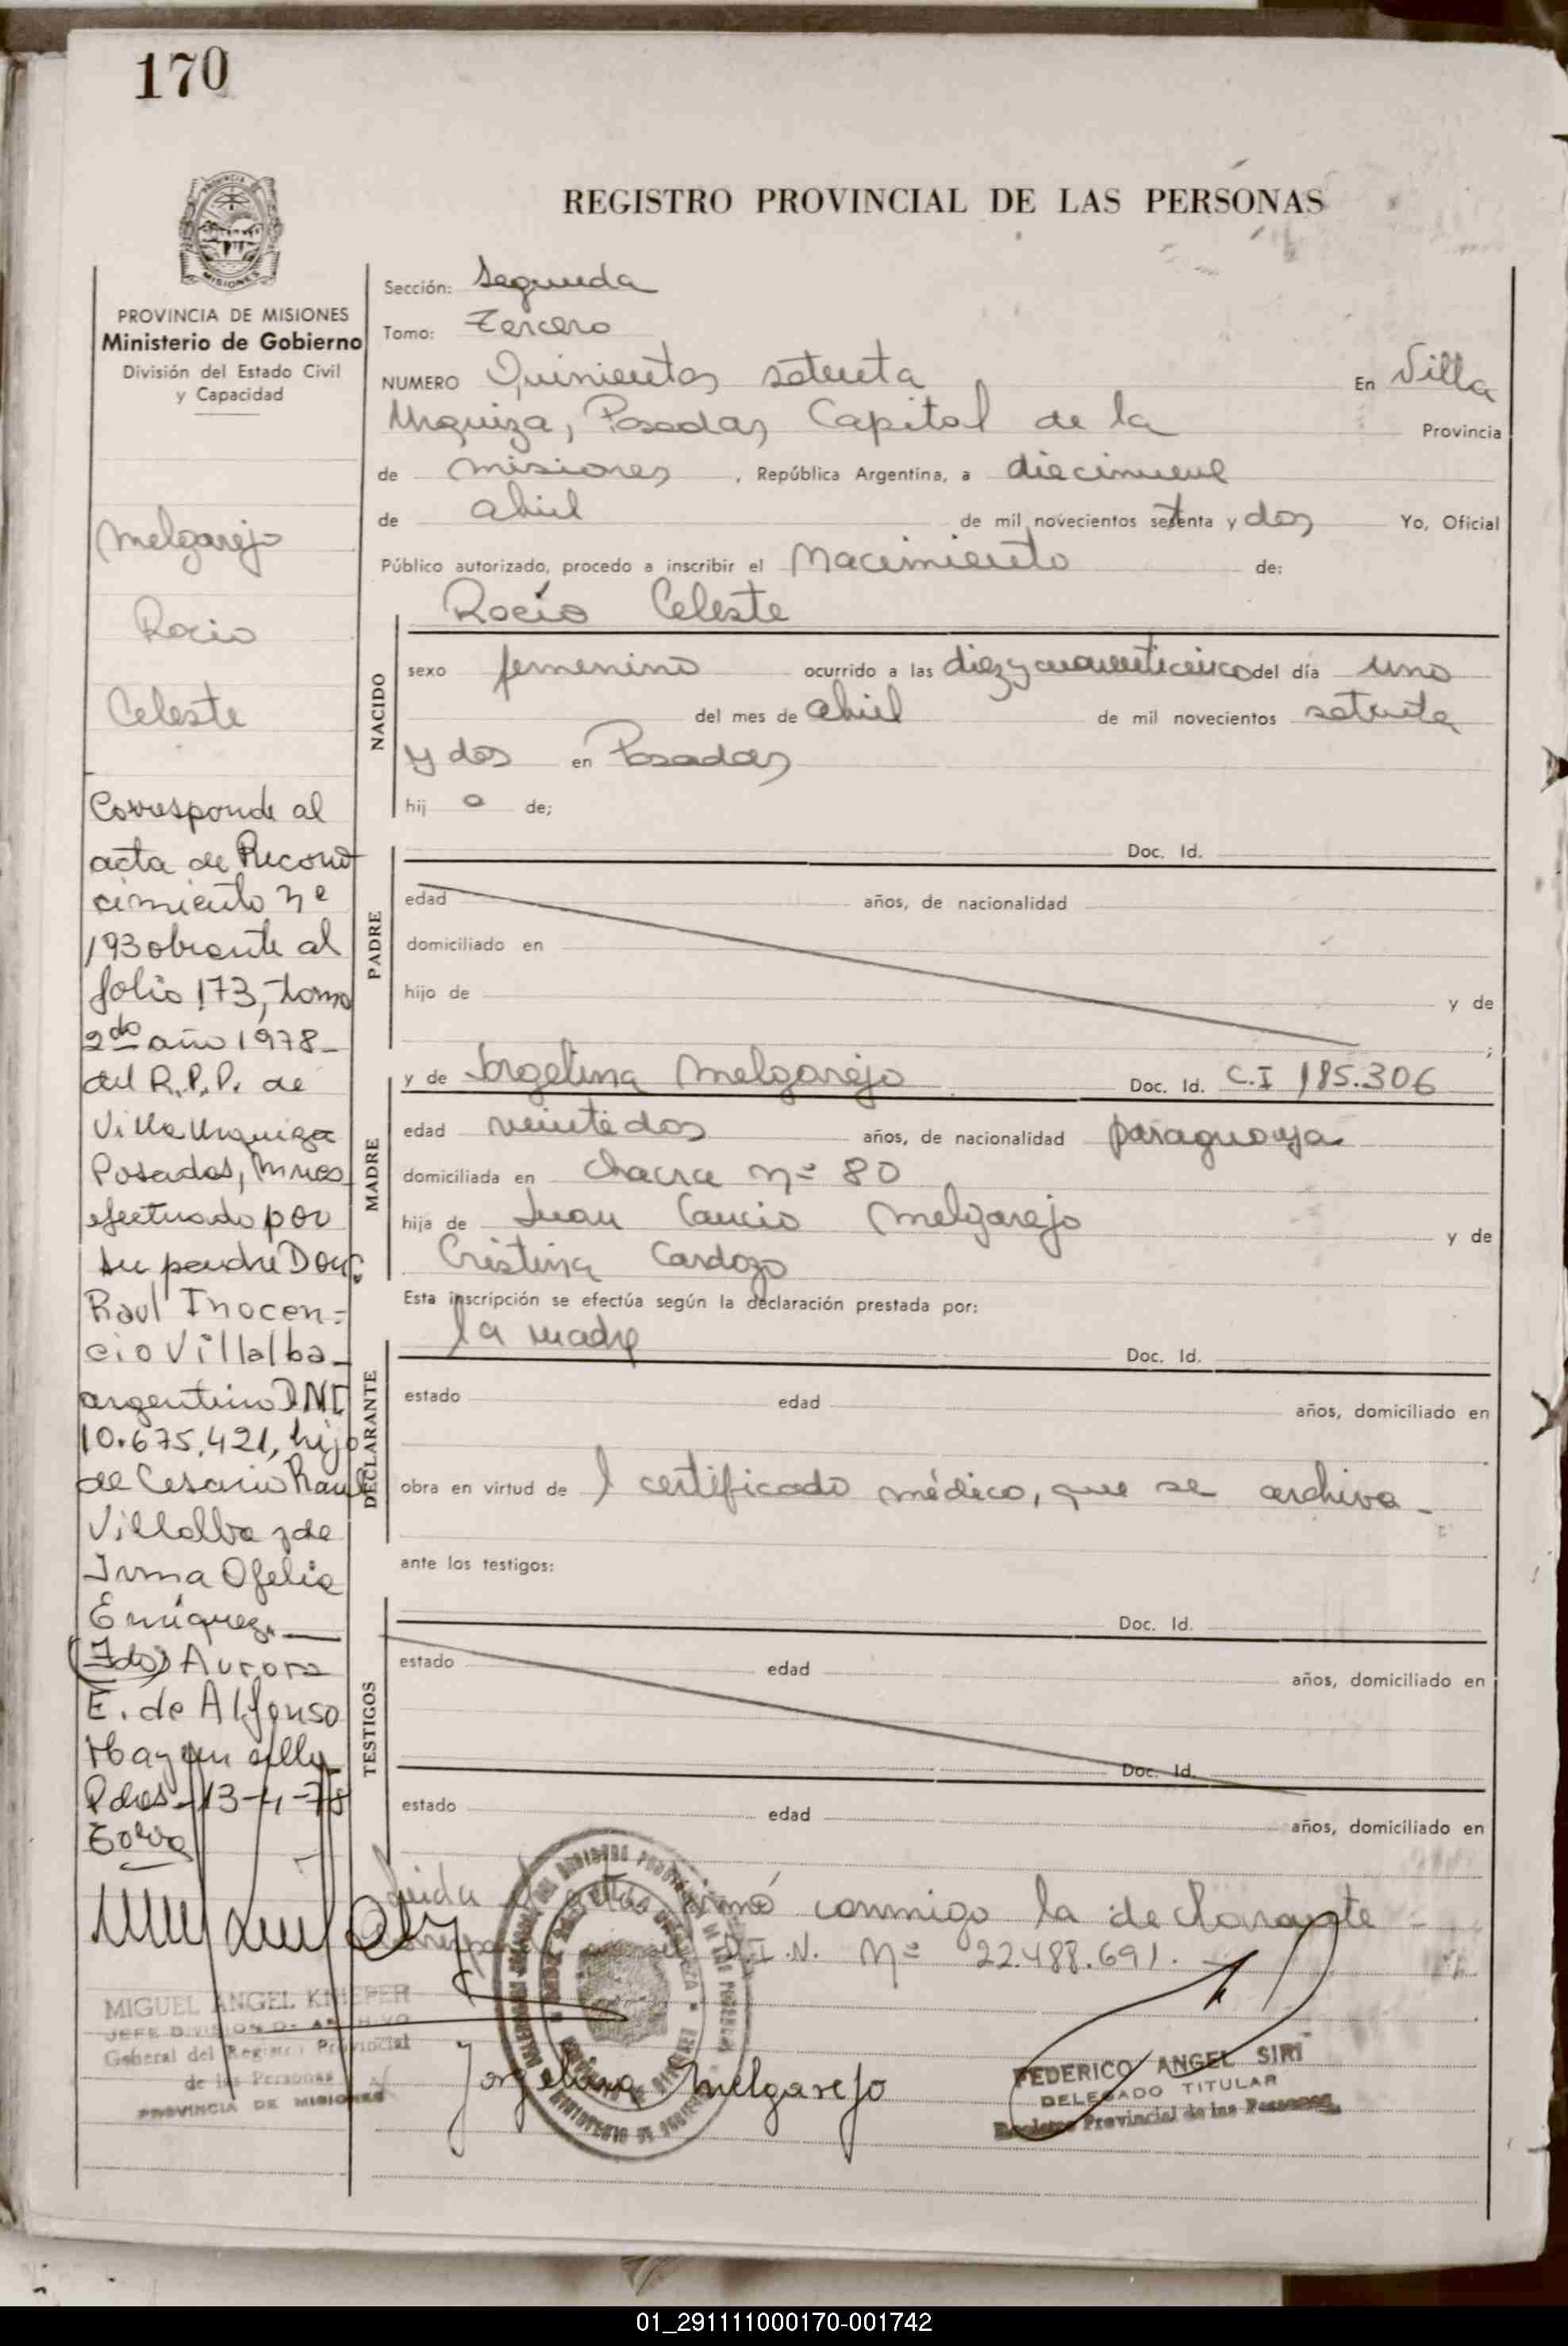 170
PROVINCIA DE
MISIONES
REGISTRO PROVINCIAL DE LAS PERSONAS
PROVINCIA DE MISIONES
Ministerio de Gobierno
División del Estado Civil
y Capacidad
Melgarejo
Rocio
Celeste
Corresponde al
acta de Recono
cimiento nº
193 obrante al
folio 173, tomo
2do año 1978-
del R.P.P. de
Villa Urquiza
Posadas, Mnes
efectuado por
su padre Don:
Raul Inocen=
cio Villalba-
argentino DNI
10.675.421, hijo
de Cesario Raul
Villalba y de
Irma Ofelia
Enriquez.
(Fdo) Aurora
E. de Alfonso
Hay un sello
Pdas-13-4-78
MIGUEL ANGEL KNIEFER
JEFE DIVISION DE ARCHIVO
General del Registro Provincial
de las Personas
PROVINCIA DE MISIONES
Sección: Segunda
Tomo: Tercero
NUMERO Quinientos setenta En Villa
Urquiza, Posadas, Capital de la Provincia
de Misiones, República Argentina, a diecinueve
de abril de mil novecientos setenta y dos Yo, Oficial
Público autorizado, procedo a inscribir el Nacimiento de:
Rocío Celeste
NACIDO
sexo femenino ocurrido a las diez y cuarenticinco del día uno
del mes de abril de mil novecientos setenta
y dos en Posadas
hij a de;
PADRE
Doc. Id.
edad años, de nacionalidad
domiciliado en
hijo de y de
;
MADRE
y de Jorgelina Melgarejo Doc. Id. C.I 185.306
edad veintidos años, de nacionalidad paraguaya
domiciliada en chacra nº 80
hija de Juan Melgarejo y de
Cristina Cardozo
Esta inscripción se efectúa según la declaración prestada por:
DECLARANTE
la madre Doc. Id.
estado edad años, domiciliado en
obra en virtud de l certificado médico, que se archiva-
ante los testigos:
TESTIGOS
Doc. Id.
estado edad años, domiciliado en
Doc. Id.
estado edad años, domiciliado en
Leida el acta firmó conmigo la declarante-
D.I.N. Nº 22.488.691.
Jorgelina Melgarejo
FEDERICO ANGEL SIRI
DELEGADO TITULAR
Registro Provincial de las Personas
01_291111000170-001742